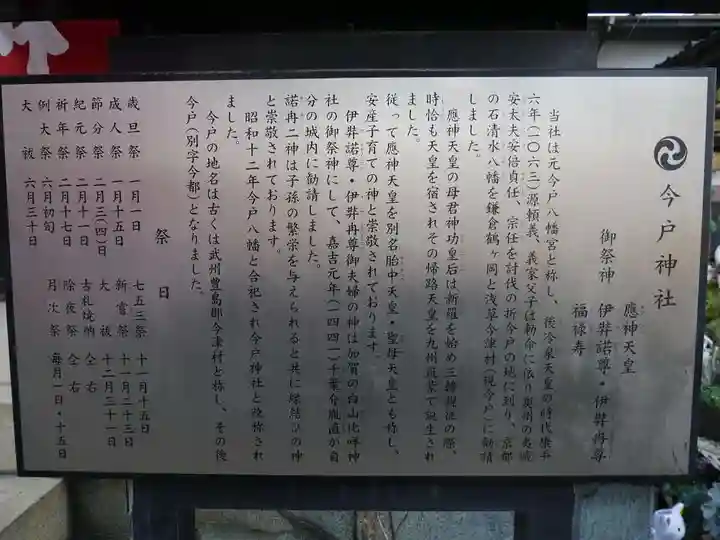 今戸神社
御祭神　應神天皇
伊弉諾尊・伊弉冉尊
福禄寿
当社は元今戸八幡宮と称し、後冷泉天皇の時代康平
六年(一〇六三)源頼義、義家父子は勅命に依り奥州の夷賊
安太夫安倍貞任、宗任を討伐の折今戸の地に到り、京都
の石清水八幡を鎌倉鶴ヶ岡と浅草今津村(現今戸)に勧請
しました。
應神天皇の母君神功皇后は新羅を始め三韓親征の際、
時恰も天皇を宿されその帰路天皇を九州筑紫で誕生され
ました。
従って應神天皇を別名胎中天皇・聖母天皇とも称し、
安産子育ての神と崇敬されております。
伊弉諾尊・伊弉冉尊御夫婦の神は加賀の白山比咩神
社の御祭神にして、嘉吉元年(一四四一)千葉介胤直が自
分の城内に勧請しました。
諾冉二神は子孫の繁栄を与えられると共に縁結びの神
と崇敬されております。
昭和十二年今戸八幡と合祀され今戸神社と改称され
ました。
今戸の地名は古くは武州豊島郡今津村と称し、その後
今戸(別字今都)となりました。
祭日
歳旦祭　一月一日
成人祭　一月十五日
節分祭　二月三(四)日
紀元祭　二月十一日
祈年祭　二月十七日
例大祭　六月初旬
大祓　六月三十日
七五三祭　十一月十五日
新嘗祭　十一月二十三日
大祓　十二月三十一日
古札焼納　仝右
除夜祭　仝右
月次祭　毎月一日・十五日